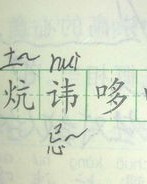 土~ huì
炕 讳 哆
忌~